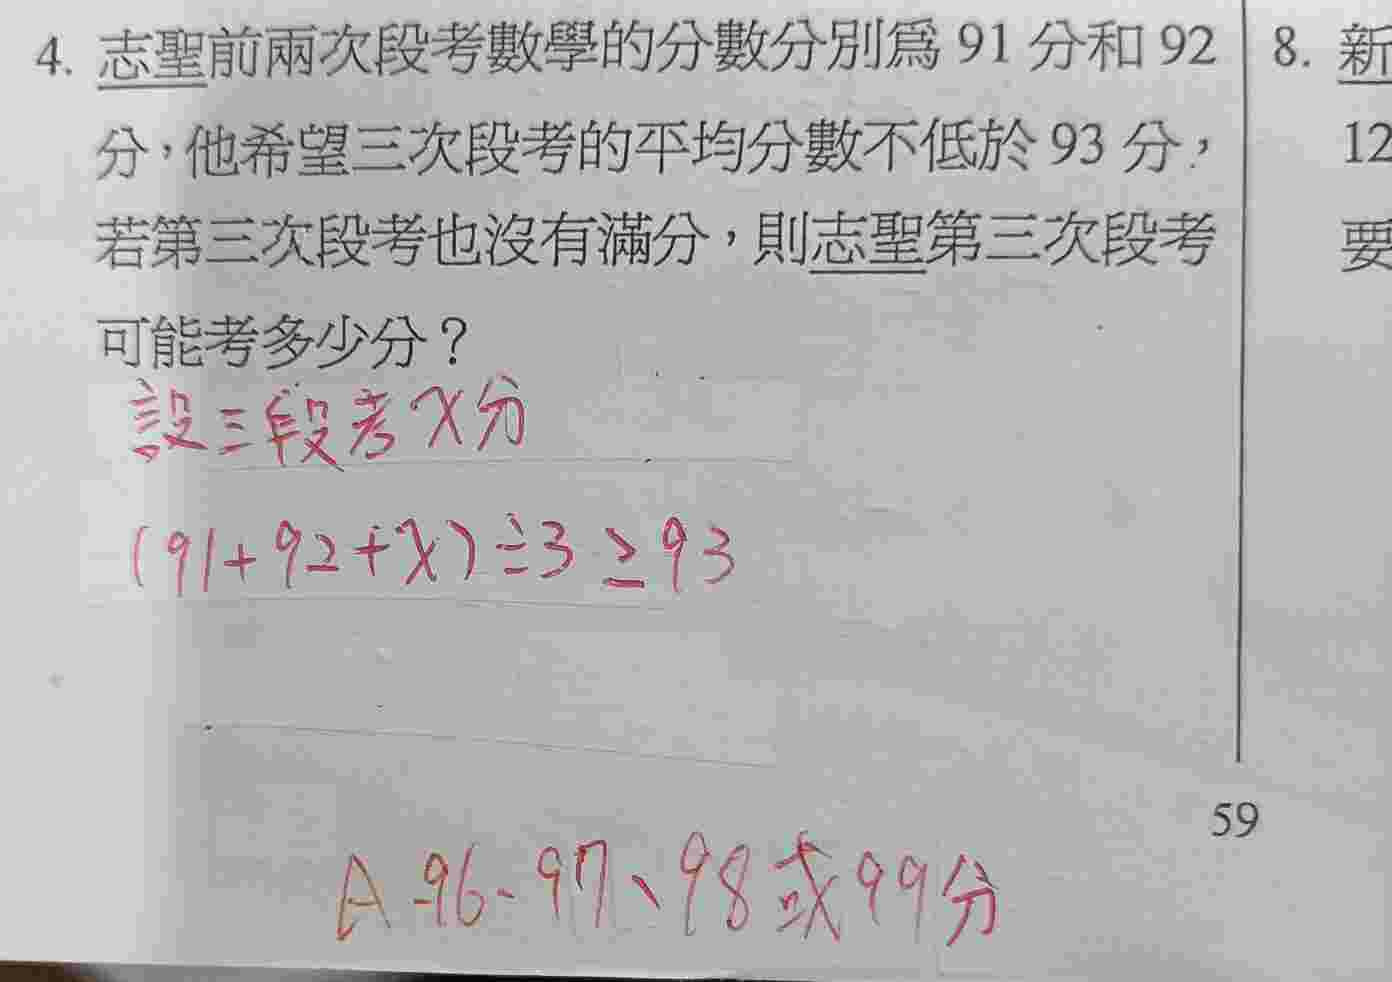 4. 志聖前兩次段考數學的分數分別爲 91 分和 92
分，他希望三次段考的平均分數不低於 93 分，
若第三次段考也沒有滿分，則志聖第三次段考
可能考多少分？
設三段考 x 分
(91+92+x)÷3≥93
A 96、97、98或99分
8. 新
12
要
59